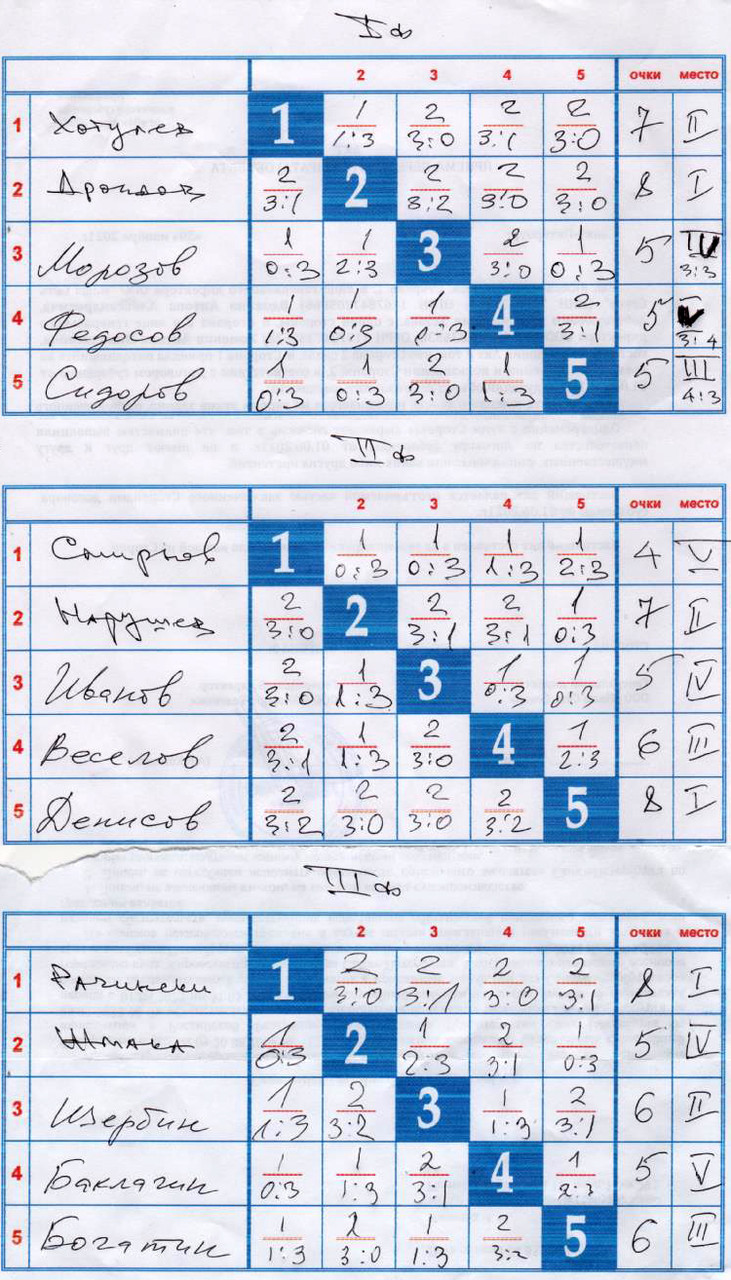 I ф
2 3 4 5 очки место
1 Хотулев 1 1 2 2 2 7 II
1:3 3:0 3:1 3:0
2 2 2 2 2 2 8 I
3:1 3:2 3:0 3:0
3 Морозов 1 1 3 2 1 5 IV
0:3 2:3 3:0 0:3 3:3
4 Федосов 1 1 1 4 2 5 V
1:3 0:3 0:3 3:1 3:4
5 Сидоров 1 1 2 1 5 5 III
0:3 0:3 3:0 1:3 4:3
II ф
2 3 4 5 очки место
1 Смирнов 1 1 1 1 1 4 V
0:3 0:3 1:3 2:3
2 Нарушев 2 2 2 2 1 7 II
3:0 3:1 3:1 0:3
3 Иванов 2 1 3 1 1 5 IV
3:0 1:3 0:3 0:3
4 Веселов 2 1 2 4 1 6 III
3:1 1:3 3:0 2:3
5 Денисов 2 2 2 2 5 8 I
3:2 3:0 3:0 3:2
III ф
2 3 4 5 очки место
1 Рачински 1 2 2 2 2 8 I
3:0 3:1 3:0 3:1
2 Жмака 1 2 1 2 1 5 IV
0:3 2:3 3:1 0:3
3 Щербин 1 2 3 1 2 6 II
1:3 3:2 1:3 3:1
4 Баклагин 1 1 2 4 1 5 V
0:3 1:3 3:1 2:3
5 Богатин 1 2 1 2 5 6 III
1:3 3:0 1:3 3:2